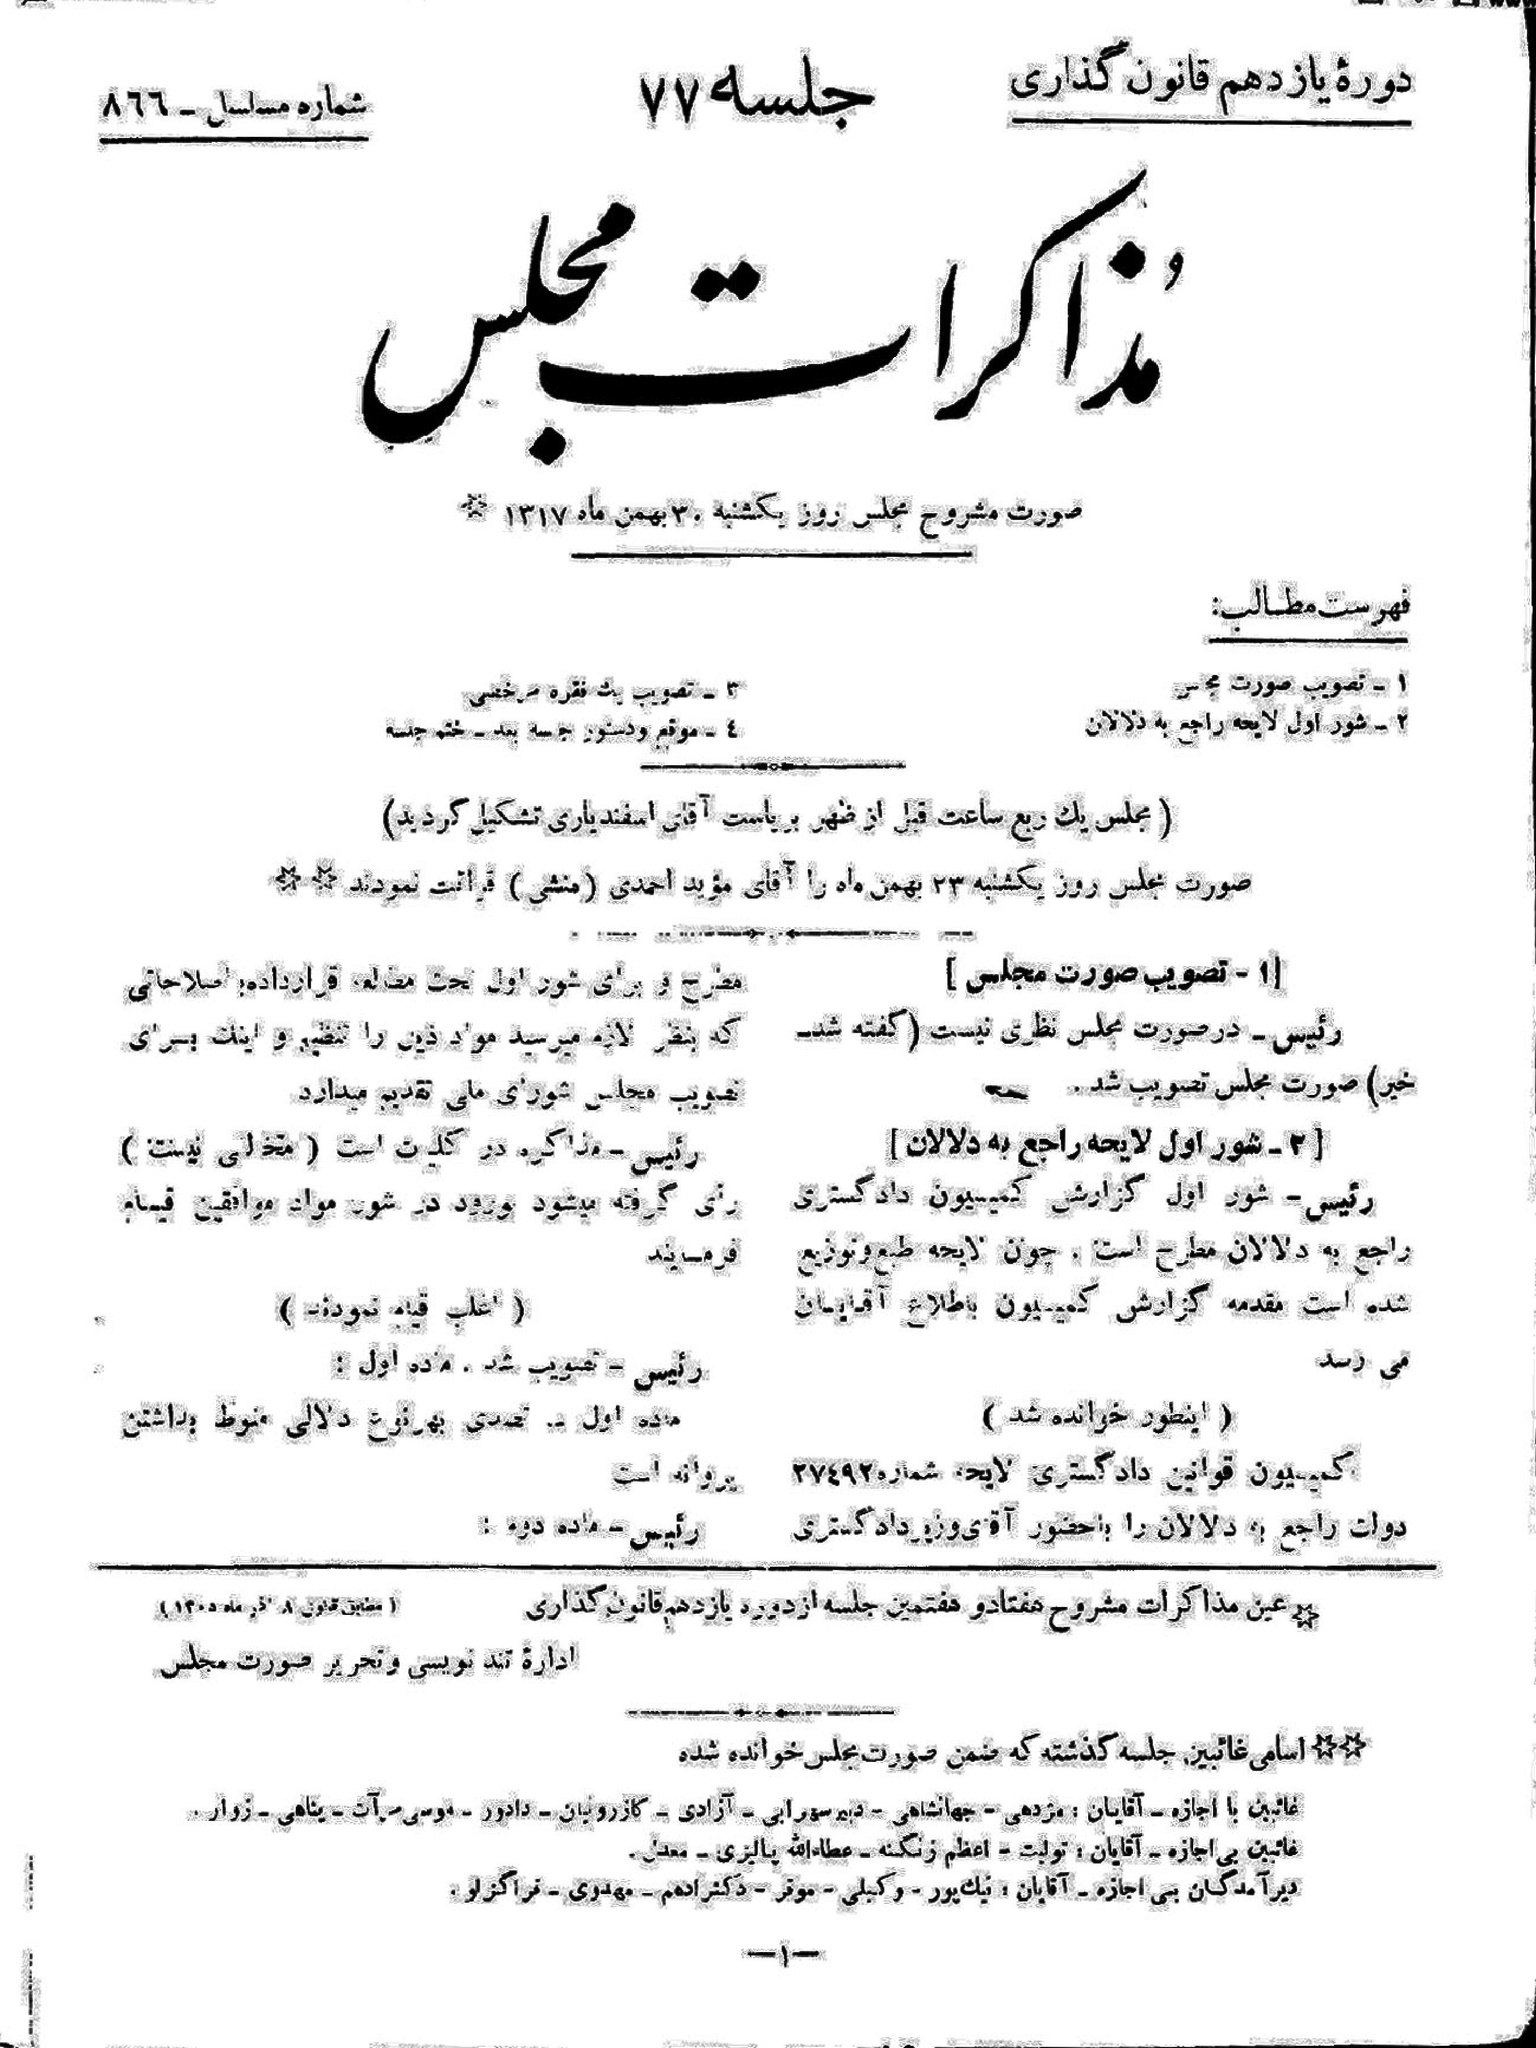 دورهٔ یازدهم قانون گذاری
جلسه ۷۷
شماره مسلسل ـ ۸٦٦
مذاکرات مجلس
صورت مشروح مجلس روز یکشنبه ۳۰ بهمن ماه ۱۳۱۷ ☆
فهرست مطالب:
۱ ـ تصویب صورت مجلس
۲ ـ شور اول لایحه راجع به دلالان
۳ ـ تصویب یک فقره مرخصی
٤ ـ موقع و دستور جلسه بعد ـ ختم جلسه
( مجلس یك ربع ساعت قبل از ظهر بریاست آقای اسفندیاری تشکیل گردید)
صورت مجلس روز یکشنبه ۲۳ بهمن ماه را آقای مؤید احمدی (منشی) قرائت نمودند ☆☆
[۱ - تصویب صورت مجلس ]
رئیس ـ درصورت مجلس نظری نیست (گفته شدـ
خیر) صورت مجلس تصویب شد .
[ ۲ ـ شور اول لایحه راجع به دلالان ]
رئیس - شور اول گزارش کمیسیون دادگستری
راجع به دلالان مطرح است . چون لایحه طبع و توزیع
شده است مقدمه گزارش کمیسیون باطلاع آقایان
می رسد
( اینطور خوانده شد )
کمیسیون قوانین دادگستری لایحه شماره ۲۷٤۹۲
دولت راجع به دلالان را باحضور آقای وزیر دادگستری
مطرح و برای شور اول تحت مطالعه قرارداده با اصلاحاتی
که بنظر لازم میرسید مواد ذیل را تنظیم و اینك برای
تصویب مجلس شورای ملی تقدیم میدارد
رئیس ـ مذاکره در کلیات است ( مخالفی نیست )
رأی گرفته میشود بورود در شور مواد موافقین قیام
فرمایند
( اغلب قیام نمودند )
رئیس ـ تصویب شد . ماده اول :
ماده اول ـ تصدی بهرنوع دلالی منوط بداشتن
پروانه است
رئیس ـ ماده دوم :
☆ عین مذاکرات مشروح هفتادو هفتمین جلسه ازدوره یازدهم قانون گذاری
( مطابق قانون ۸ آذر ماه ۱۳۰۵)
ادارهٔ تند نویسی و تحریر صورت مجلس
☆☆ اسامی غائبین جلسه گذشته که ضمن صورت مجلس خوانده شده
غائبین با اجازه ـ آقایان : مژدهی - جهانشاهی - دبیرسهرابی ـ آزادی ـ کازرونیان ـ دادور ـ موسی مرآت ـ پناهی ـ زوار .
غائبین بی اجازه ـ آقایان : تولیت - اعظم زنگنه ـ عطاءالله پالیزی ـ معدل .
دیرآمدگان بی اجازه ـ آقایان : نیک‌پور - وکیلی - موقر - دکتر ادهم ـ مهدوی ـ قراگزلو .
—۱—